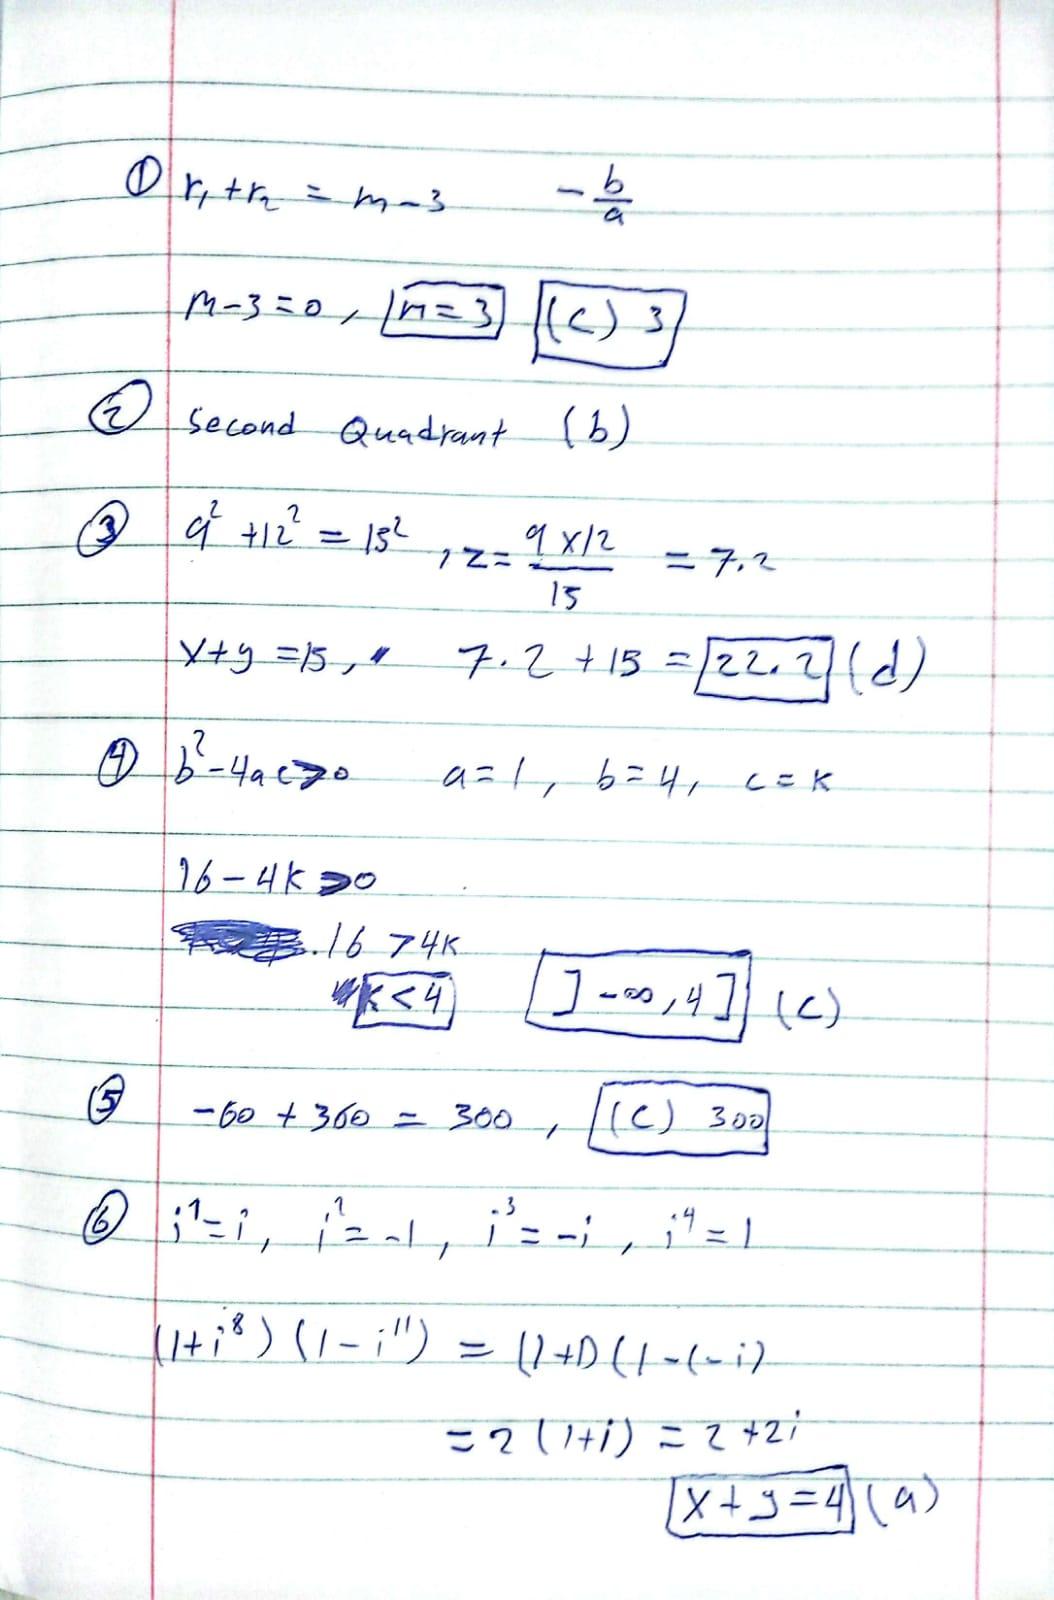 ① r₁ + r₂ = m - 3 - b/a
m - 3 = 0 , m = 3 (c) 3
② Second Quadrant (b)
③ 9² + 12² = 15² , z = 9 x 12 / 15 = 7.2
x + y = 15 , 7.2 + 15 = 22.2 (d)
④ b² - 4ac > 0 a = 1 , b = 4 , c = k
16 - 4k > 0
16 > 4k
k < 4 ] -∞ , 4 ] (c)
⑤ -60 + 360 = 300 , (c) 300
⑥ i¹ = i , i² = -1 , i³ = -i , i⁴ = 1
(1 + i⁸) (1 - i¹¹) = (1 + 1) (1 - (-i)
= 2 (1 + i) = 2 + 2i
x + y = 4 (a)